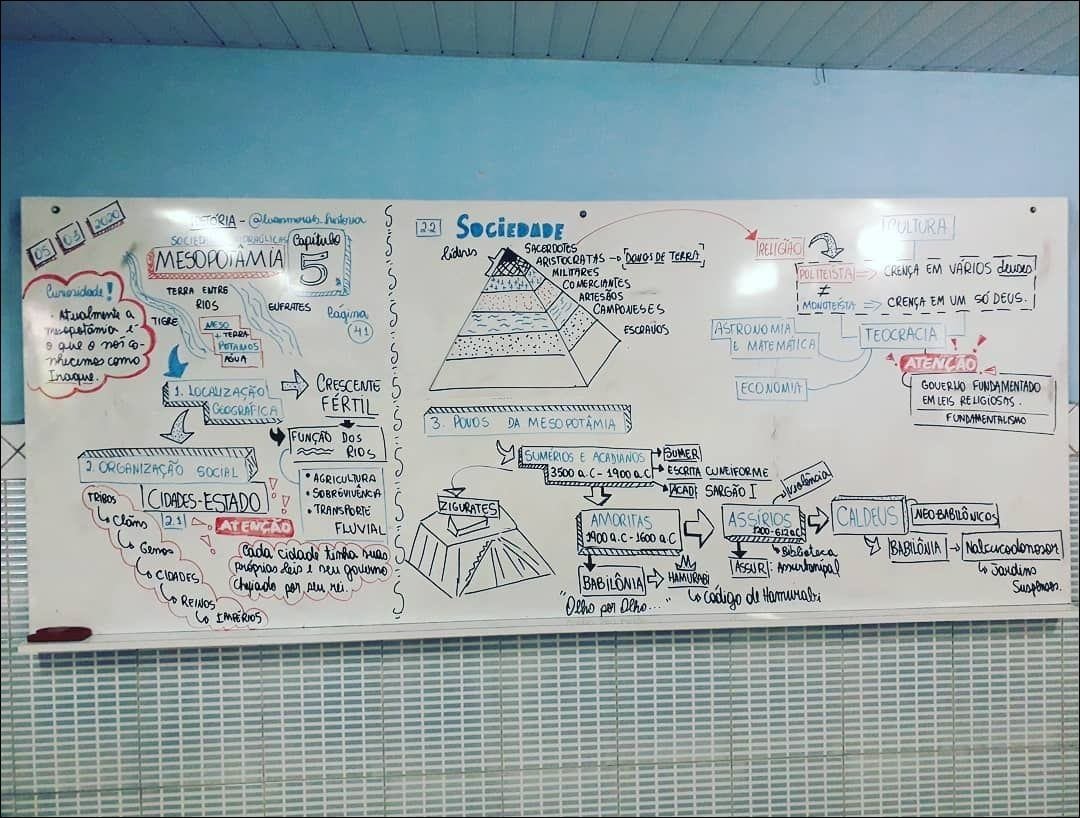 05 03 2020
HISTÓRIA - @luanmorais_historia
SOCIEDADES HIDRÁULICAS
MESOPOTÂMIA
Capítulo
5
Página
41
TERRA ENTRE
RIOS
TIGRE
EUFRATES
MESO
+ TERRA
POTAMOS
ÁGUA
Curiosidade!
• Atualmente a
mesopotâmia é
o que o nós co-
nhecemos como
Iraque.
1. LOCALIZAÇÃO
GEOGRÁFICA
CRESCENTE
FÉRTIL
FUNÇÃO DOS
RIOS
• AGRICULTURA
• SOBREVIVÊNCIA
• TRANSPORTE
FLUVIAL
2. ORGANIZAÇÃO SOCIAL
CIDADES-ESTADO
2.1
ATENÇÃO
Cada cidade tinha suas
próprias leis e seu governo
chefiado por seu rei.
TRIBOS
Clãns
Genos
CIDADES
REINOS
IMPÉRIOS
2.2 SOCIEDADE
líderes
SACERDOTES
ARISTOCRATAS → DONOS DE TERRA
MILITARES
COMERCIANTES
ARTESÃOS
CAMPONESES
ESCRAVOS
CULTURA
RELIGIÃO
POLITEÍSTA ⇒ CRENÇA EM VÁRIOS deuses
≠
MONOTEÍSTA ⇒ CRENÇA EM UM SÓ DEUS.
ASTRONOMIA
E MATEMÁTICA
TEOCRACIA
ECONOMIA
ATENÇÃO
GOVERNO FUNDAMENTADO
EM LEIS RELIGIOSAS.
FUNDAMENTALISMO
3. POVOS DA MESOPOTÂMIA
SUMÉRIOS E ACADIANOS
3500 a.C - 1900 a.C
SUMER
ESCRITA CUNEIFORME
ACAD: SARGÃO I
ZIGURATES
AMORITAS
1900 a.C - 1600 a.C
BABILÔNIA → HAMURABI
"Olho por Olho..."
Código de Hamurabi
ASSÍRIOS
1200-612 a.C
violência
ASSUR:
Biblioteca
Assurbanipal
CALDEUS
NEO-BABILÔNICOS
BABILÔNIA → Nabucodonosor
Jardins
Suspensos.